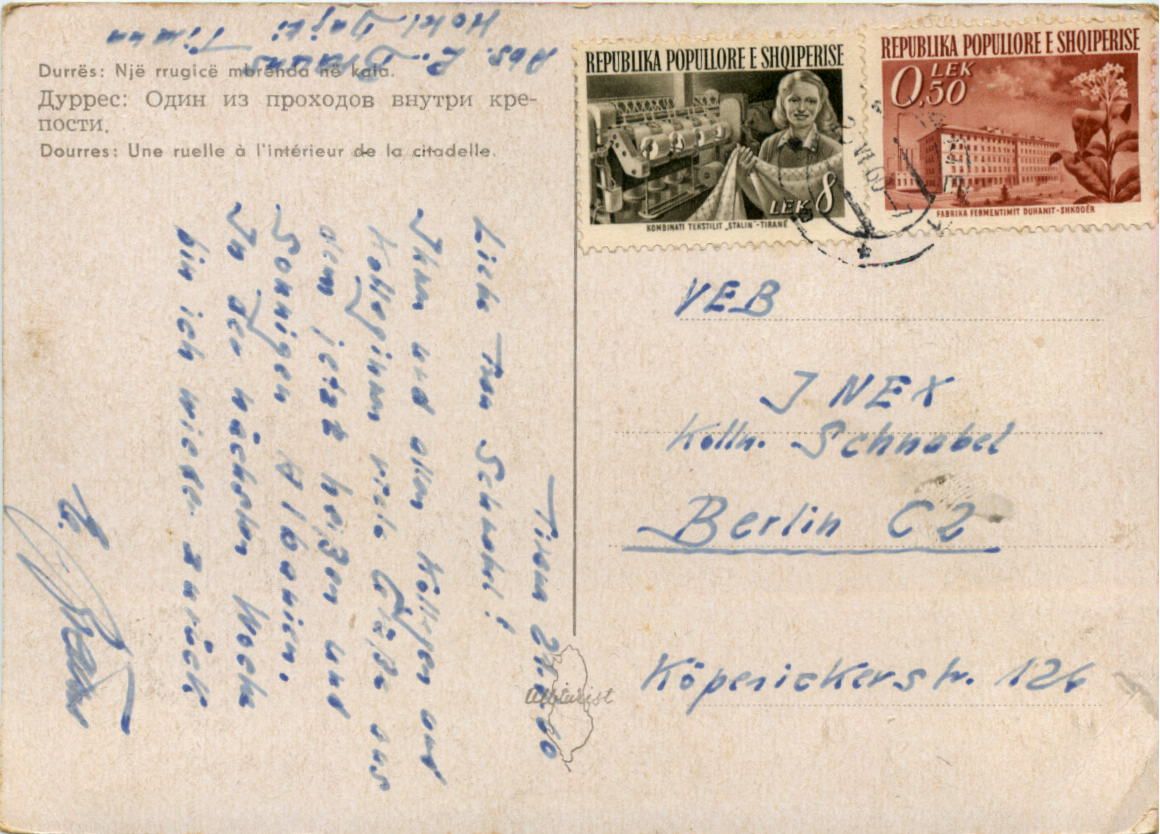 Abs. L. Braun
Hotel Dajti
Tirana
Durrës: Një rrugicë mbrenda në kala.
Дуррес: Один из проходов внутри кре-
пости.
Dourres: Une ruelle à l'intérieur de la citadelle.
Tirana 21.6.60
Liebe Frau Schnabel!
Ihnen und allen Kollegen und
Kolleginnen viele Grüße aus
dem jetzt heißen und
Sonnigen Albanien.
In der nächsten Woche
bin ich wieder zurück
L. Braun
Albturist
REPUBLIKA POPULLORE E SHQIPERISE
LEK 8
KOMBINATI TEKSTILIT „STALIN"-TIRANË
REPUBLIKA POPULLORE E SHQIPERISE
0,50 LEK
FABRIKA FERMENTIMIT DUHANIT-SHKODËR
VEB
INEX
Kolln. Schnabel
Berlin C2
Köpenickerstr. 126